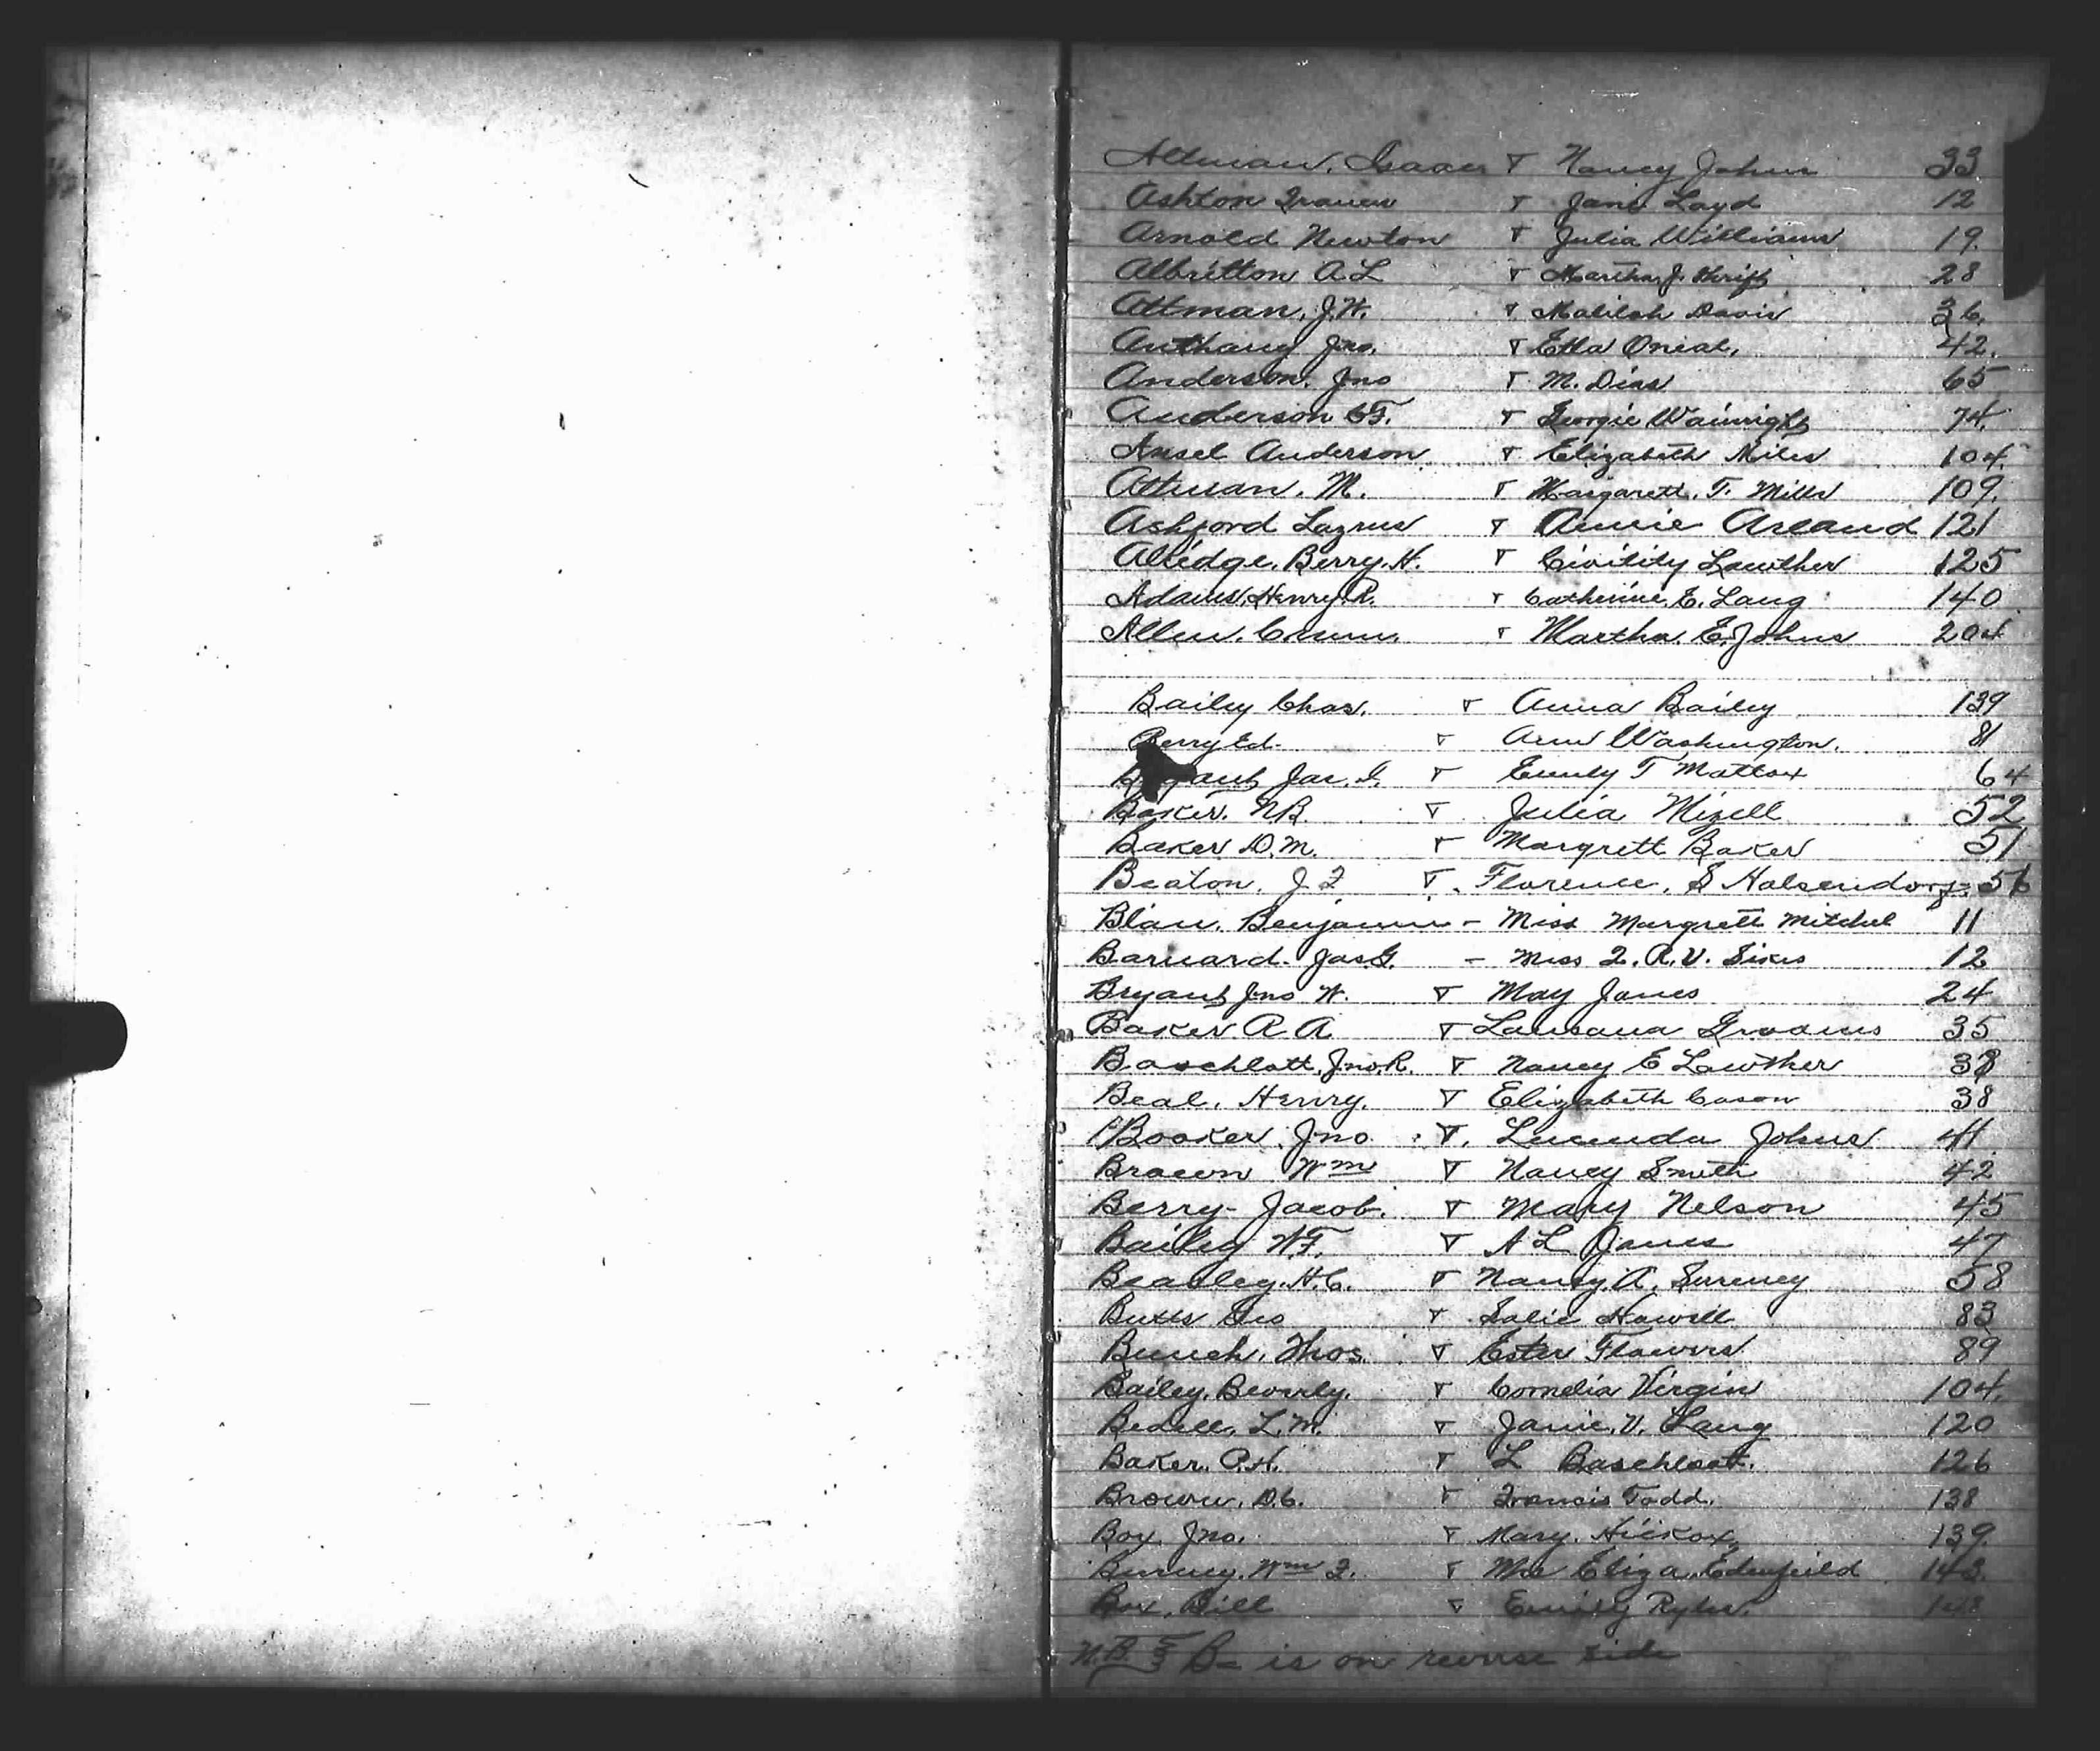 Altman, Isaac & Nancy Johns 33
Ashton Frances & Jane Loyd 12
Arnold Newton & Julia Williams 19.
Albritton A. L & Martha J. Thrift 28
Altman, J. W. & Malilah Davis 36.
Anthony Jno. & Etta Oneal, 42.
Anderson, Jno & M. Dias 65
Anderson C F. & Georgie Wainright 74.
Ansel Anderson & Elizabeth Niles 104.
Altman, M. & Margarett. T. Mills 109.
Ashford Lazrus & Annie Arland 121
Alledge, Berry. H. & Civility Lowther 125
Adams, Henry R. & Catherine. E. Lang 140
Allen, & Martha. E. Johns 204
Bailey Chas. & Anna Bailey 139
Berry Ed. & Ann Washington. 81
Bryant Jas. & Emily T Mattox 64
Baker. N. B. & Julia Mizell 52
Baker D. M. & Margrett Baker 51
Beaton, J F & Florence, S Holsendorf 56
Blan. Benjamin - Miss Margrett Mitchel 11
Barnard. Jas. G. - Miss F. R. V. Sikes 12
Bryant Jno W. & May Jones 24
Baker R. A. & Grooms 35
Baschlott, Jno. R. & Nancy E Lowther 38
Beal, Henry. & Elizabeth Cason 38
Booker, Jno & Lucinda Johns 41
Brown Wm & Nancy Smith 42
Berry - Jacob. & Mary Nelson 45
Bailey W. F. & A L Jones 47
Beasley. H. C. & Nancy. A. 58
Butts Geo & Salie Howell 83
Bunch, Thos. & Ester Flowers 89
Bailey, Beverly. & Cornelia Virgin 104.
Bedell, L. M. & Janie. V. Lang 120
Baker. P. H. & L Baschloat. 126
Brown, D. C. & Francis Todd. 138
Box Jno. & Mary. Hickox, 139.
Burney, Wm F. & Mrs Eliza. Edenfield 143.
Box, Bill & Emily
N.B. B= is on reverse side